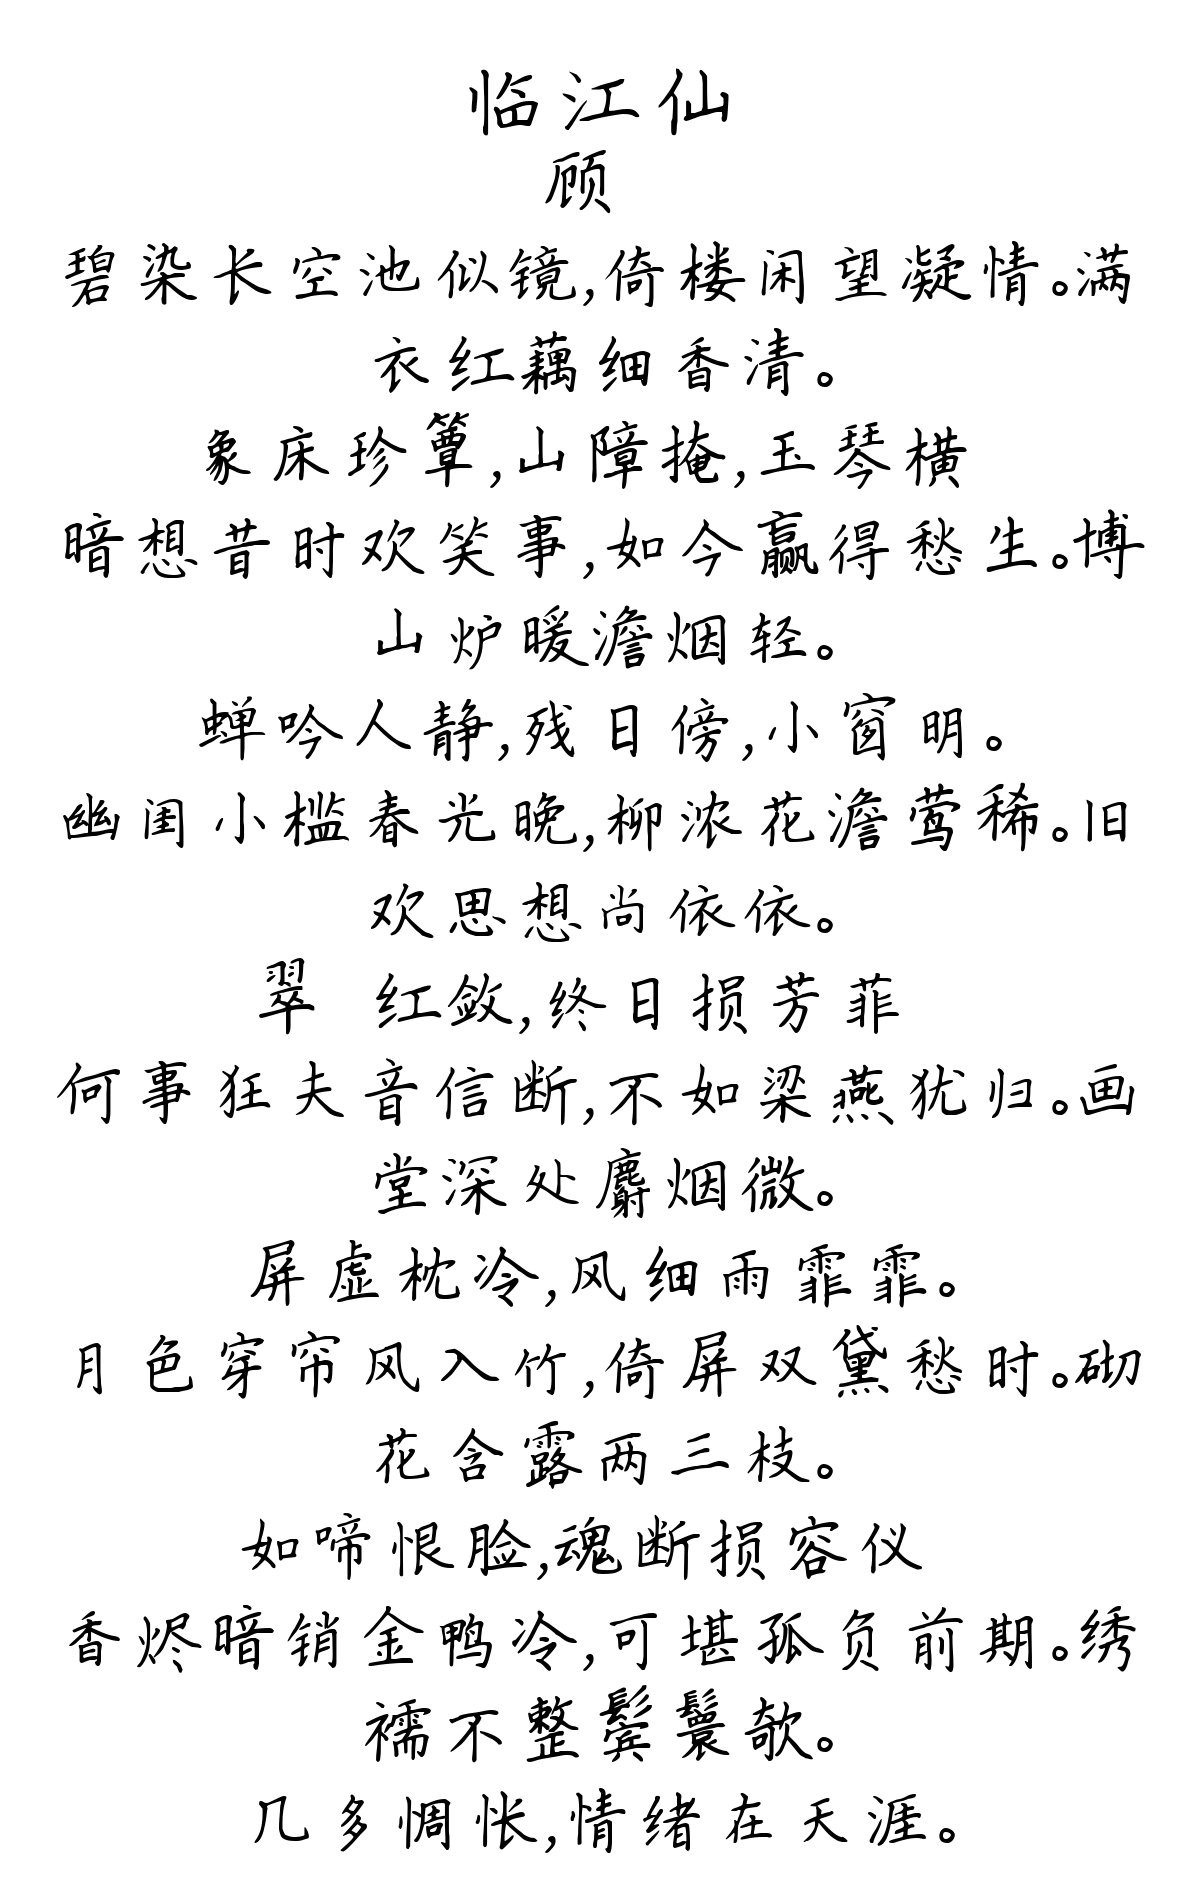 临江仙
顾
碧染长空池似镜,倚楼闲望凝情。满
衣红藕细香清。
象床珍簟,山障掩,玉琴横
暗想昔时欢笑事,如今赢得愁生。博
山炉暖澹烟轻。
蝉吟人静,残日傍,小窗明。
幽闺小槛春光晚,柳浓花澹莺稀。旧
欢思想尚依依。
翠 红敛,终日损芳菲
何事狂夫音信断,不如梁燕犹归。画
堂深处麝烟微。
屏虚枕冷,风细雨霏霏。
月色穿帘风入竹,倚屏双黛愁时。砌
花含露两三枝。
如啼恨脸,魂断损容仪
香烬暗销金鸭冷,可堪孤负前期。绣
襦不整鬓鬟欹。
几多惆怅,情绪在天涯。